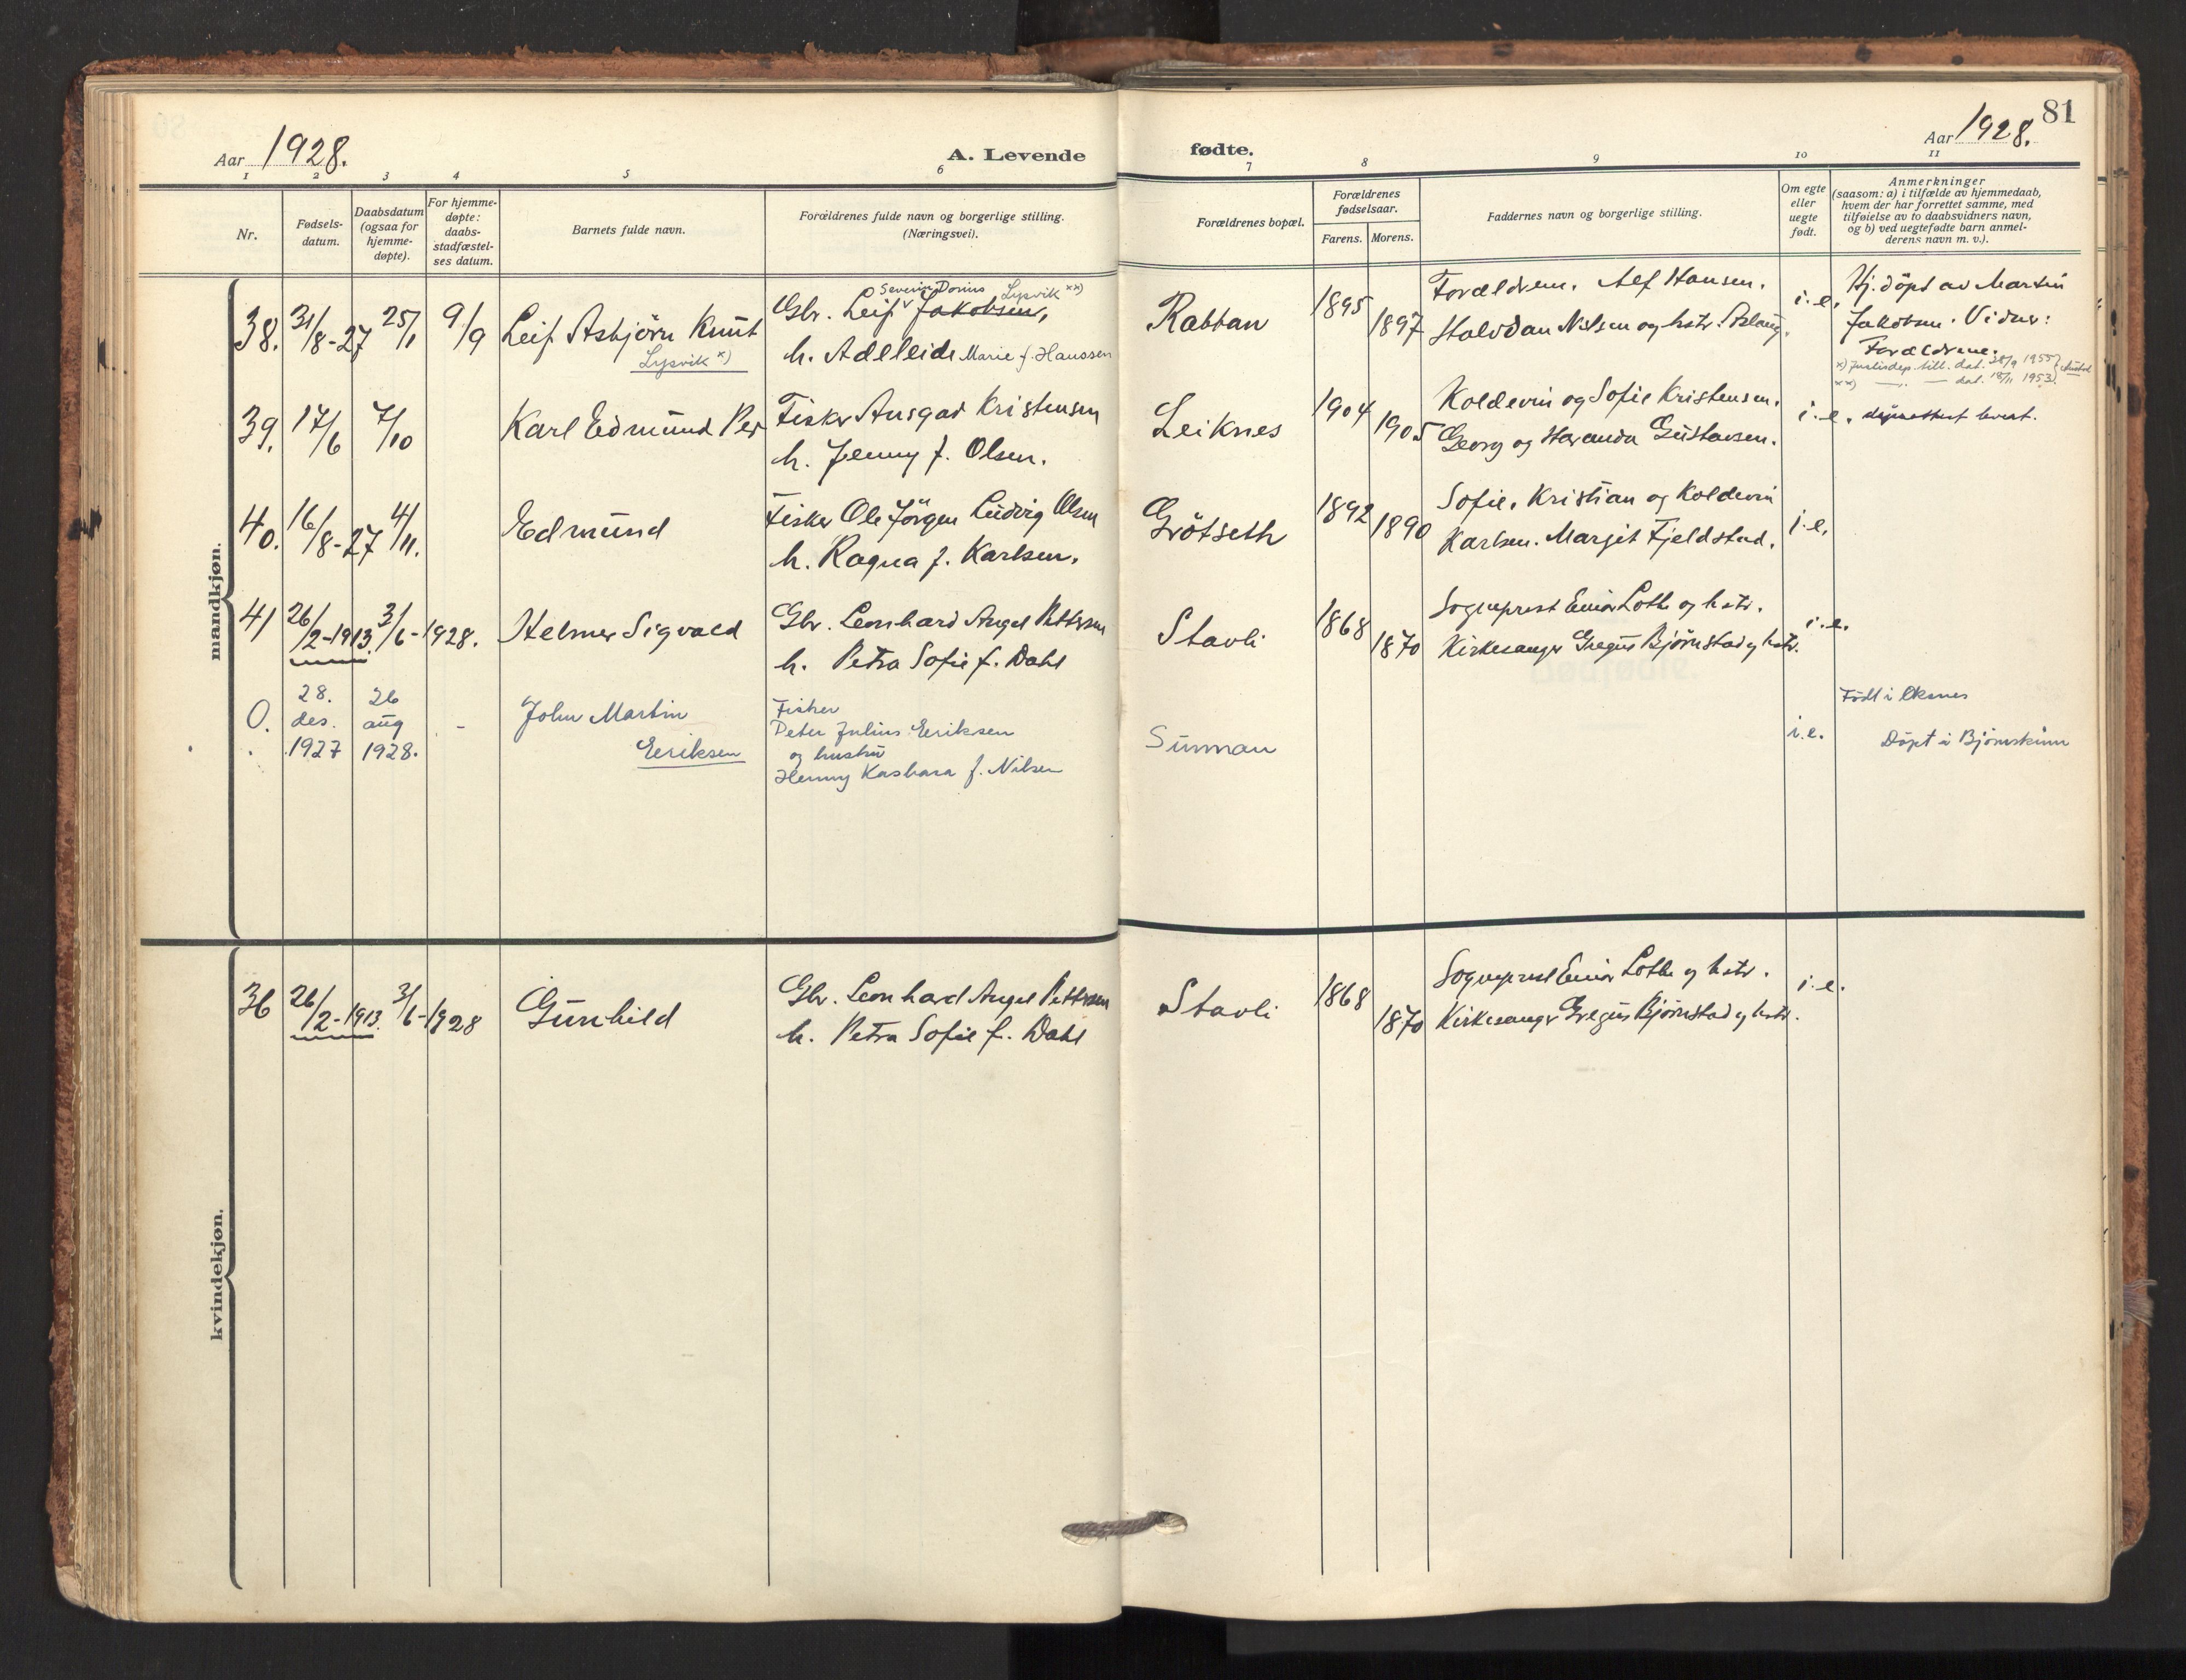 81
Aar 1928.
A. Levende
fødte.
Aar 1928.
1 2 3 4 5 6 7 8 9 10 11
Nr.
Fødsels-
datum.
Daabsdatum
(ogsaa for
hjemme-
døpte).
For hjemme-
døpte:
daabs-
stadfæstel-
ses datum.
Barnets fulde navn.
Forældrenes fulde navn og borgerlige stilling.
(Næringsvei).
Forældrenes bopæl.
Forældrenes
fødselsaar.
Farens. Morens.
Faddernes navn og borgerlige stilling.
Om egte
eller
uegte
født.
Anmerkninger
(saasom: a) i tilfælde av hjemmedaab,
hvem der har forrettet samme, med
tilføielse av to daabsvidners navn,
og b) ved uegtefødte barn anmel-
derens navn m. v.).
mandkjøn.
38. 31/8-27 25/1 9/9
Leif Asbjörn Knut
Lysvik x)
Severin Dorius Lysvik xx)
Gbr. Leif Jakobsen,
h. Adeleide Marie f. Hanssen
Rabban
1895
1897
Forældrene. Alf Hansen.
Halvdan Nilsen og hstr. Aslaug.
i.e.
Hj. döpt av Martin
Jakobsen. Vidner:
Forældrene.
x) Justisdep. till. dat. 28/9 1955
xx) — " — dat. 18/11 1953.
39. 17/6 7/10
Karl Edmund Per
Fisker Ansgar Kristensen
h. Jenny f. Olsen.
Leiknes
1904
1905
Koldevin og Sofie Kristensen.
Georg og Haranda Gustavsen.
i.e.
40. 16/8-27 4/11.
Edmund
Fisker Ole Jörgen Ludvig Olsen
h. Ragna f. Karlsen.
Grötseth
1892
1890
Sofie, Kristian og Koldevin
Karlsen. Margit Fjeldstad.
i.e.
41 26/2-1913. 3/6-1928.
Helmer Sigvald
Gbr. Leonhard Angel Pettersen
h. Petra Sofie f. Dahl
Stavli
1868
1870
Sogneprest Einar Lothe og hstr.
Kirkesanger Gregus Bjørnstad og hstr.
i.e.
0. 28. des. 1927 26 aug 1928. -
John Martin
Eeriksen
Fisker
Peter Julius Eeriksen
og hustru
Henny Kasbara f. Nilsen
Sunnan
i.e.
Födt i Øksnes
Döpt i Bjørnskinn
kvindekjøn.
36 26/2-1913. 3/6-1928
Gunhild
Gbr. Leonhard Angel Pettersen
h. Petra Sofie f. Dahl
Stavli
1868
1870
Sogneprest Einar Lothe og hstr.
Kirkesanger Gregus Bjørnstad og hstr.
i.e.